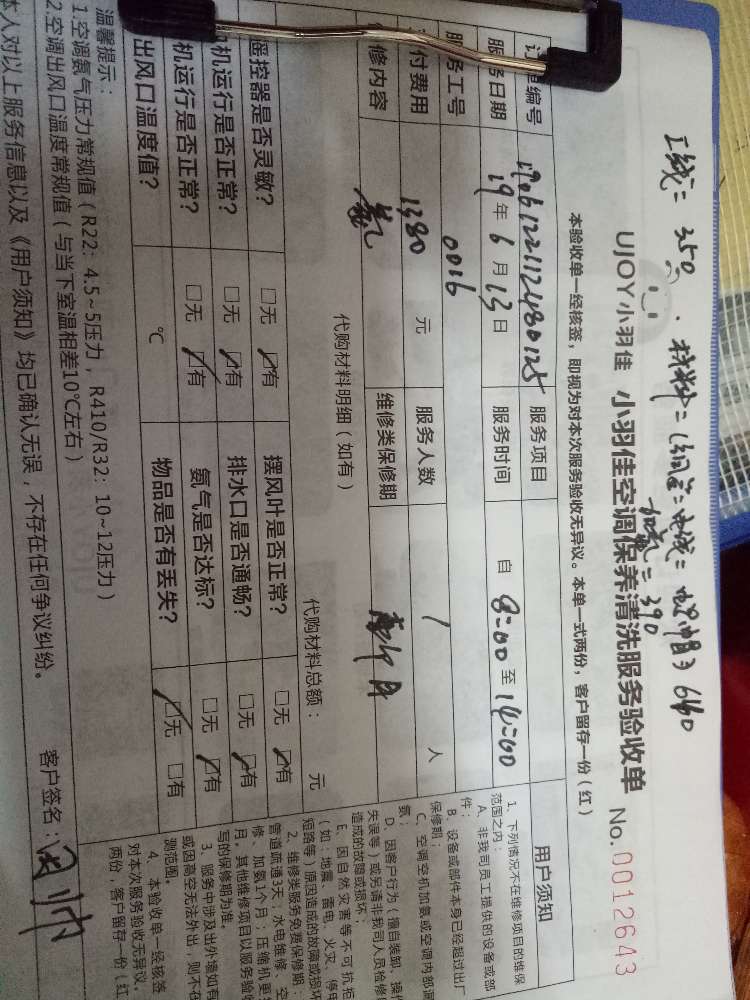 工线=350. 材料=(铜管=电线=螺帽) 640
加氨=390
UJOY小羽佳 小羽佳空调保养清洗服务验收单 No.0012643
本验收单一经核签，即视为对本次服务验收无异议。本单一式两份，客户留存一份(红)
编号 服务项目
服务日期 19年6月13日 服务时间 自 8:00 至 14:00
务工号 0016
付费用 1380 元 服务人数 1 人
修内容 氨 维修类保修期
代购材料明细(如有) 代购材料总额： 元
遥控器是否灵敏? □无 □有 摆风叶是否正常? □无 □有
机运行是否正常? □无 □有 排水口是否通畅? □无 □有
机运行是否正常? □无 □有 氨气是否达标? □无 □有
出风口温度值? ℃ 物品是否有丢失? □无 □有
温馨提示：
1.空调氨气压力常规值(R22: 4.5~5压力，R410/R32: 10~12压力)
2.空调出风口温度常规值(与当下室温相差10℃左右)
本人对以上服务信息以及《用户须知》均已确认无误，不存在任何争议纠纷。 客户签名：
用户须知
1、下列情况不在维修项目的维保
范围之内：
A、非我司员工提供的设备或部
件；
B、设备或部件本身已经超过出厂
保修期；
C、空调空机加氨或空调内部漏
氨；
D、因客户行为(擅自装卸、操作
失误等)或另请非我司人员检修
造成的故障或损坏；
E、因自然灾害等不可抗拒
(如：地震、雷电、火灾、停电
短路等)原因造成的故障或损坏
2、维修类服务免费保修期：
管道疏通3天；水电维修、空
修、加氨1个月；压缩机更
月，其他维修项目以服务验收
写的保修期为准。
3、服务中涉及出外墙如有
或因高空无法外出，则不在
测范围。
4、本验收单一经核签
对本次服务验收无异议。
两份，客户留存一份(红